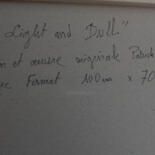 Light and Dull"
n et œuvre originale Patrick
Format 100 cm x 70